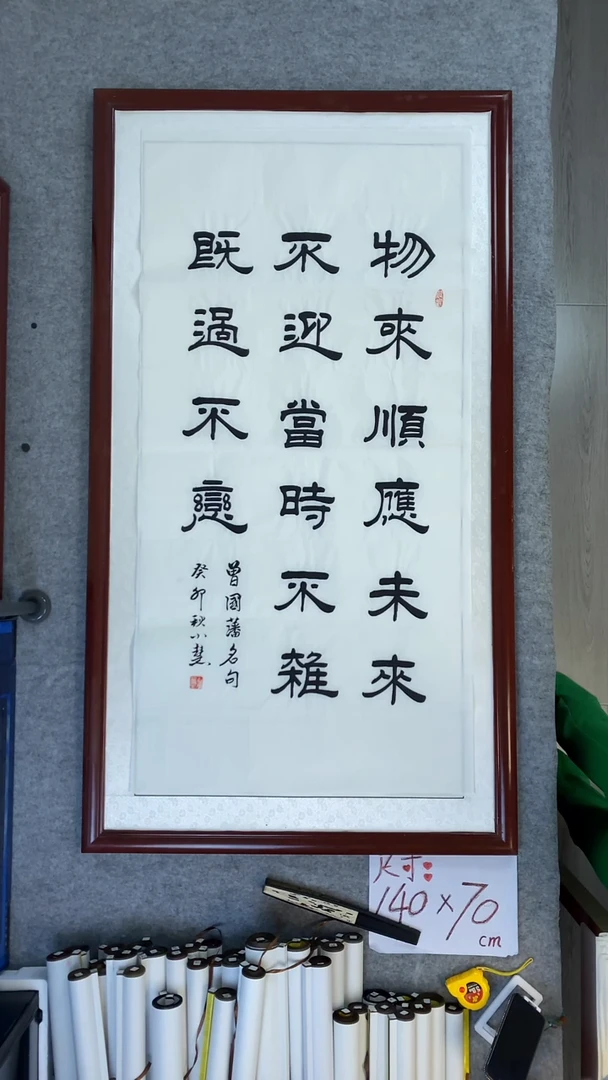 物來順應未來
不迎當時不雜
既過不戀
曾國藩名句
癸卯秋小楚
尺寸:
140×70
cm